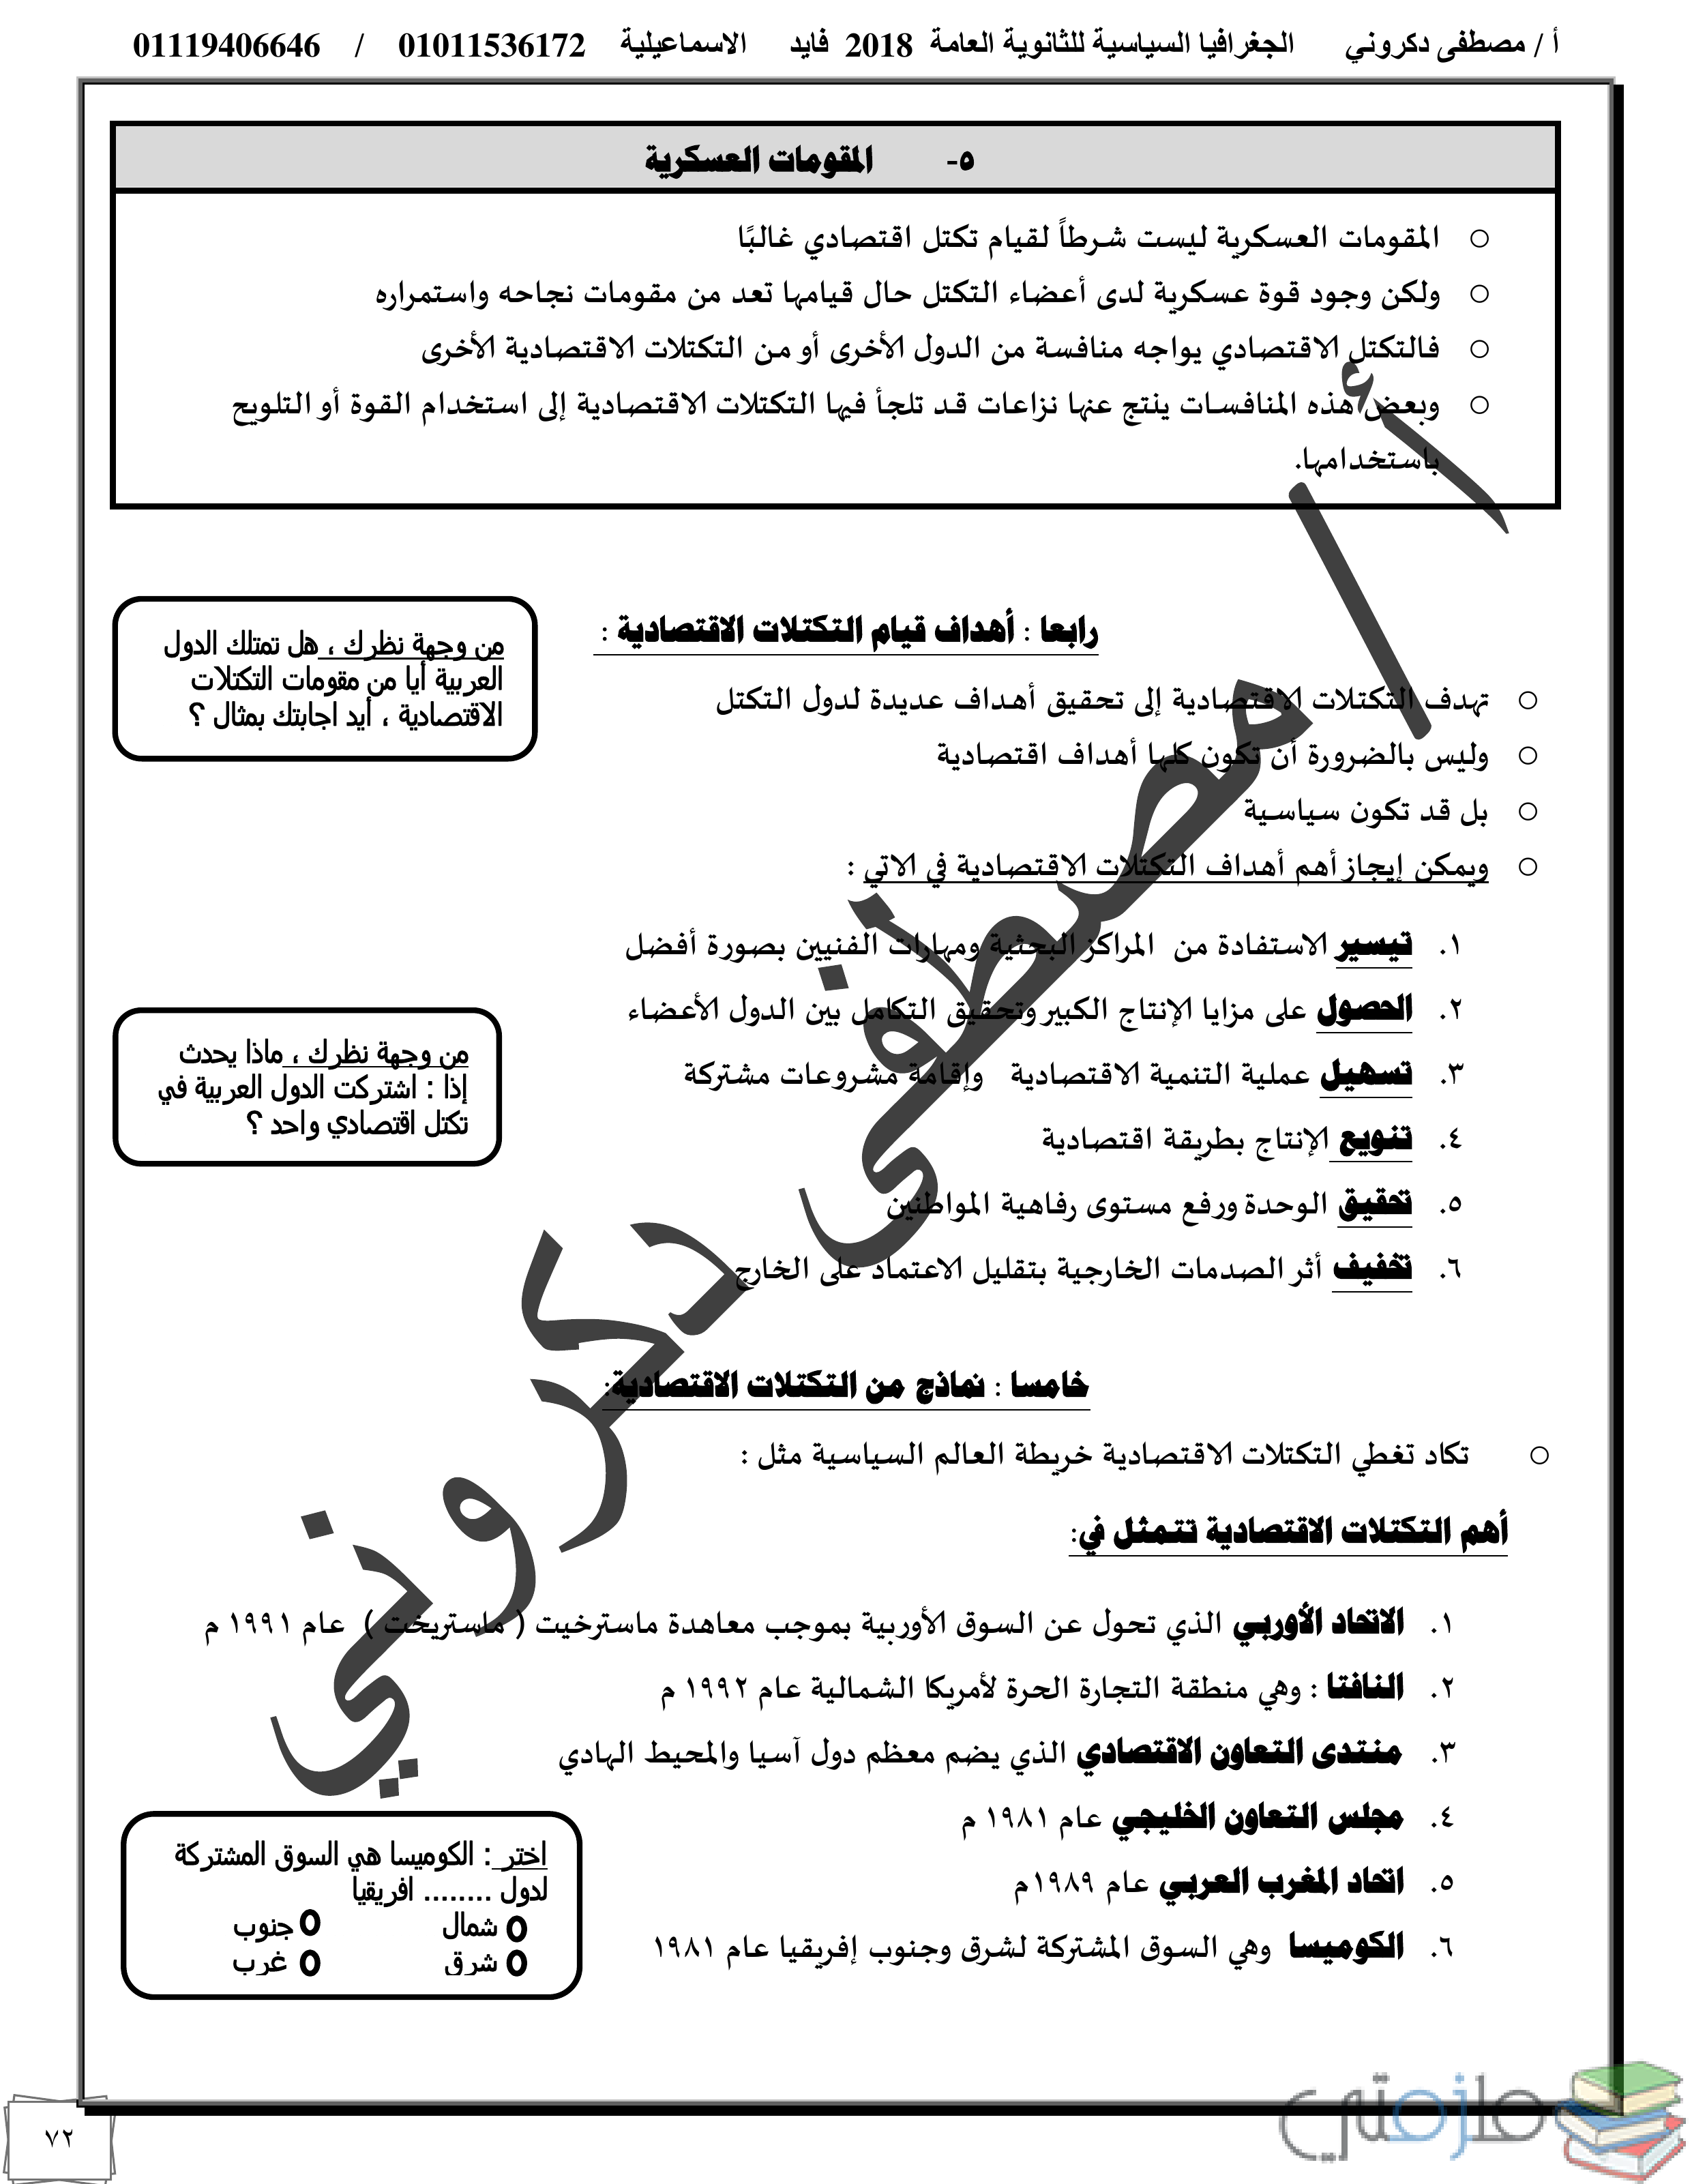 أ / مصطفى دكروني الجغرافيا السياسية للثانوية العامة 2018 فايد الاسماعيلية 01011536172 / 01119406646
٥- المقومات العسكرية
المقومات العسكرية ليست شرطاً لقيام تكتل اقتصادي غالبًا
ولكن وجود قوة عسكرية لدى أعضاء التكتل حال قيامها تعد من مقومات نجاحه واستمراره
فالتكتل الاقتصادي يواجه منافسة من الدول الأخرى أو من التكتلات الاقتصادية الأخرى
وبعض هذه المنافسات ينتج عنها نزاعات قد تلجأ فيها التكتلات الاقتصادية إلى استخدام القوة أو التلويح
باستخدامها.
رابعا : أهداف قيام التكتلات الاقتصادية :
من وجهة نظرك ، هل تمتلك الدول
العربية أيا من مقومات التكتلات
الاقتصادية ، أيد اجابتك بمثال ؟
تهدف التكتلات الاقتصادية إلى تحقيق أهداف عديدة لدول التكتل
وليس بالضرورة أن تكون كلها أهداف اقتصادية
بل قد تكون سياسية
ويمكن إيجاز أهم أهداف التكتلات الاقتصادية في الاتي :
١. تيسير الاستفادة من المراكز البحثية ومهارات الفنيين بصورة أفضل
٢. الحصول على مزايا الإنتاج الكبير وتحقيق التكامل بين الدول الأعضاء
٣. تسهيل عملية التنمية الاقتصادية وإقامة مشروعات مشتركة
٤. تنويع الإنتاج بطريقة اقتصادية
٥. تحقيق الوحدة ورفع مستوى رفاهية المواطنين
٦. تخفيف أثر الصدمات الخارجية بتقليل الاعتماد على الخارج
من وجهة نظرك ، ماذا يحدث
إذا : اشتركت الدول العربية في
تكتل اقتصادي واحد ؟
خامسا : نماذج من التكتلات الاقتصادية:
تكاد تغطي التكتلات الاقتصادية خريطة العالم السياسية مثل :
أهم التكتلات الاقتصادية تتمثل في:
١. الاتحاد الأوربي الذي تحول عن السوق الأوربية بموجب معاهدة ماسترخيت ( ماستريخت ) عام ١٩٩١ م
٢. النافتا : وهي منطقة التجارة الحرة لأمريكا الشمالية عام ١٩٩٢ م
٣. منتدى التعاون الاقتصادي الذي يضم معظم دول آسيا والمحيط الهادي
٤. مجلس التعاون الخليجي عام ١٩٨١ م
٥. اتحاد المغرب العربي عام ١٩٨٩م
٦. الكوميسا وهي السوق المشتركة لشرق وجنوب إفريقيا عام ١٩٨١
اختر : الكوميسا هي السوق المشتركة
لدول ........ افريقيا
شمال جنوب
شرق غرب
أ / مصطفى دكروني
ملزمتي
٧٢